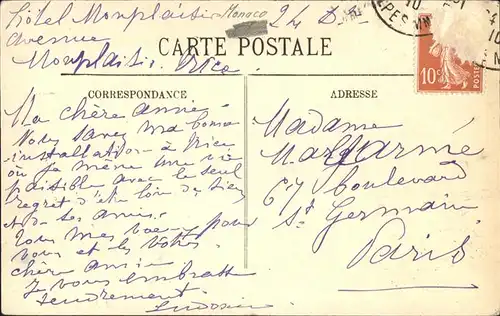 Hôtel Monplaisir Monaco 24 D
Avenue
Monplaisir Nice
CARTE POSTALE
10
10
10c
POSTES
CORRESPONDANCE
ADRESSE
Ma chère amie
Vous savez ma bonne
installation à Nice
où je mène une vie
paisible avec le seul
regret d'être loin de
et de ses amis.
Tous mes vœux pour
vous et les vôtres
chère amie
Je vous embrasse
tendrement.
Madame
67 boulevard
St Germain
Paris